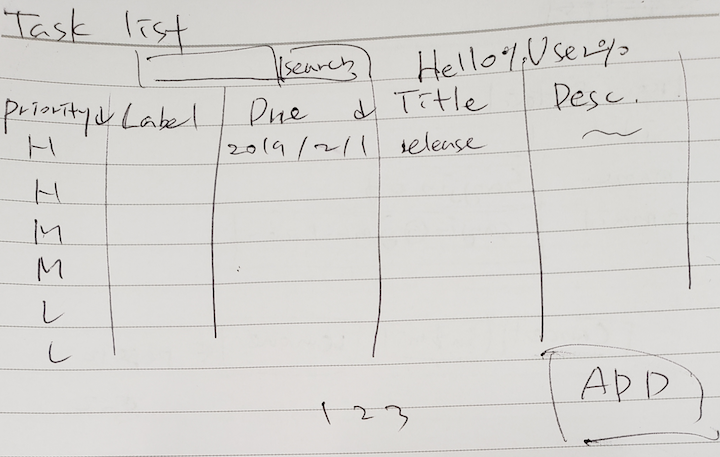 Task list
search
Hello %User%
Priority↓ Label Due ↓ Title Desc.
H 2019/2/1 release
H
M
M
L
L
ADD
1 2 3